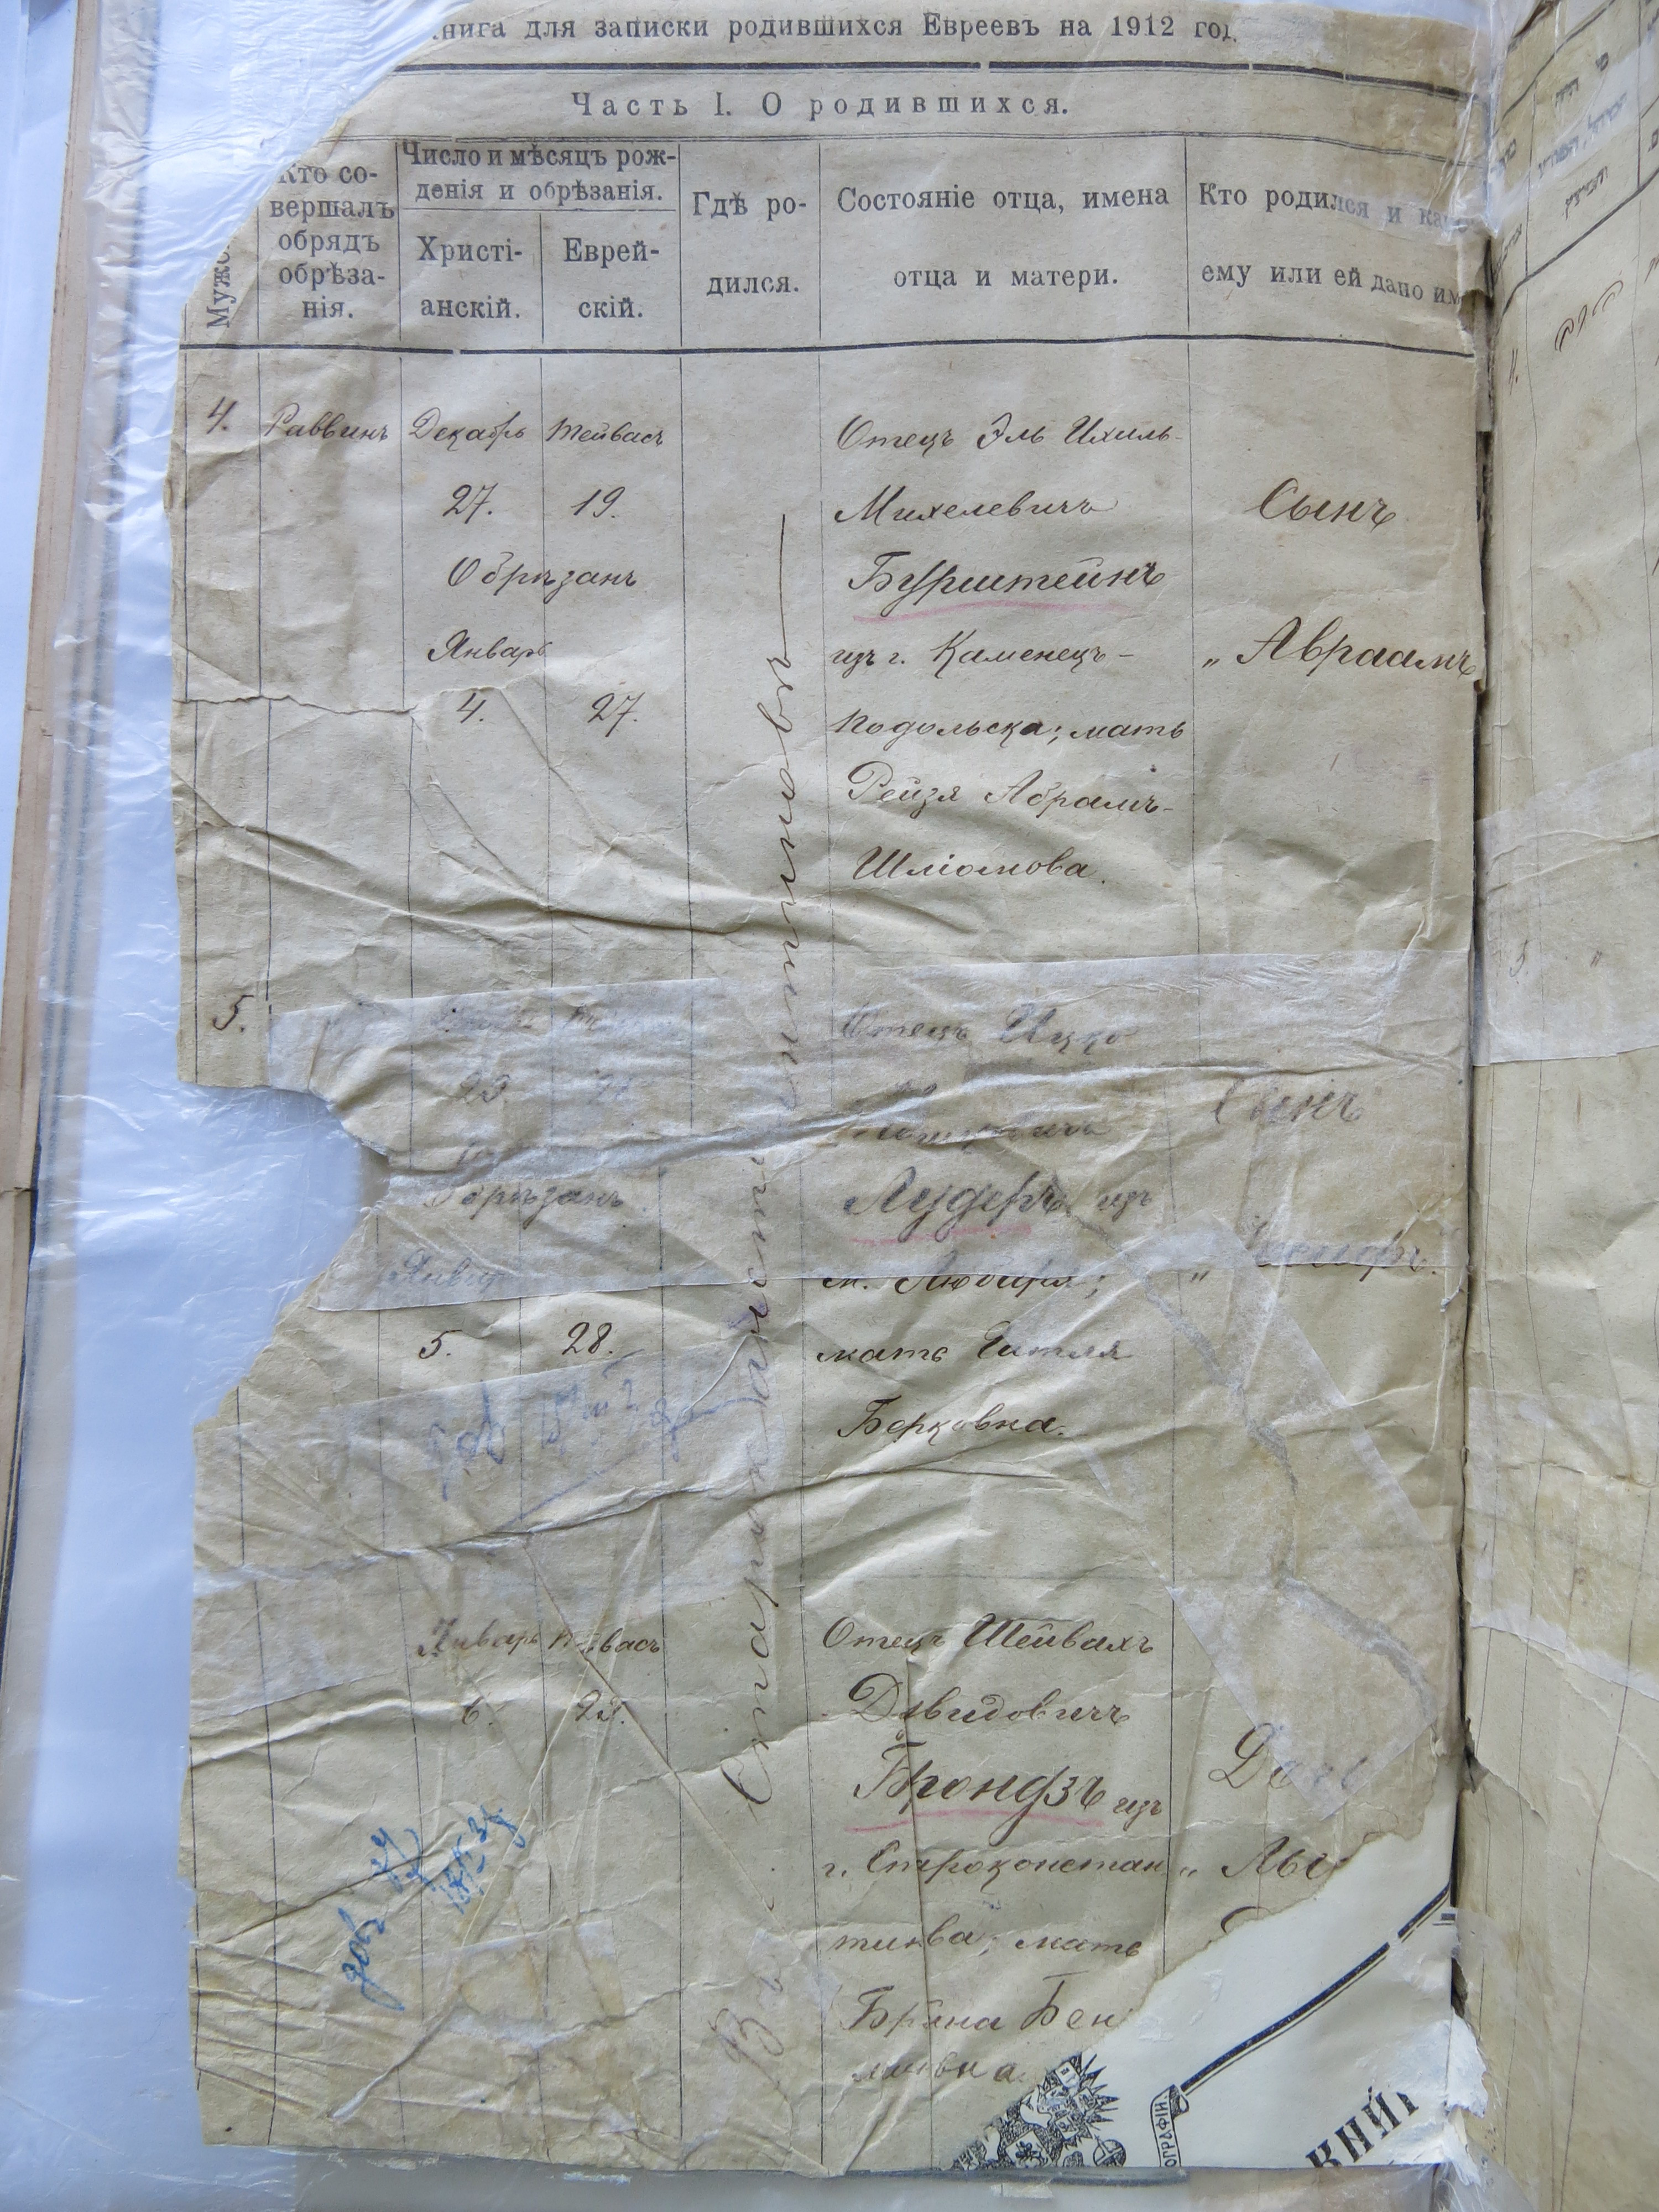 книга для записки родившихся Евреевъ на 1912 год
Часть I. О родившихся.
Кто совершалъ обрядъ обрѣзанія.
Число и мѣсяцъ рож-
денія и обрѣзанія.
Христі-
анскій.
Еврей-
скій.
Гдѣ ро-
дился.
Состояніе отца, имена
отца и матери.
Кто родился и как
ему или ей дано им
4. Раввинъ Декабрь Тейвасъ
27. 19.
Обрѣзанъ
Январь
4. 27.
Отецъ Эль Ихиль-
Михелевичъ
Бурштейнъ
изъ г. Каменецъ-
Подольска; мать
Рейзя Абрамъ-
Шліомова.
Сынъ
„ Авраамъ
5.
Обрѣзанъ
Январь
5. 28.
Отецъ Ицко
Лудеръ изъ
м. Любаря;
мать Гитля
Берковна.
Сынъ
„ Іосифъ.
Январь Тейвасъ
6.
Отецъ Шейвахъ
Дaвидовичъ
Брондзъ изъ
г. Староконстан
тинова; мать
Бряна Бен
Въ г. Староконстантиновѣ
ОГРАФІИ